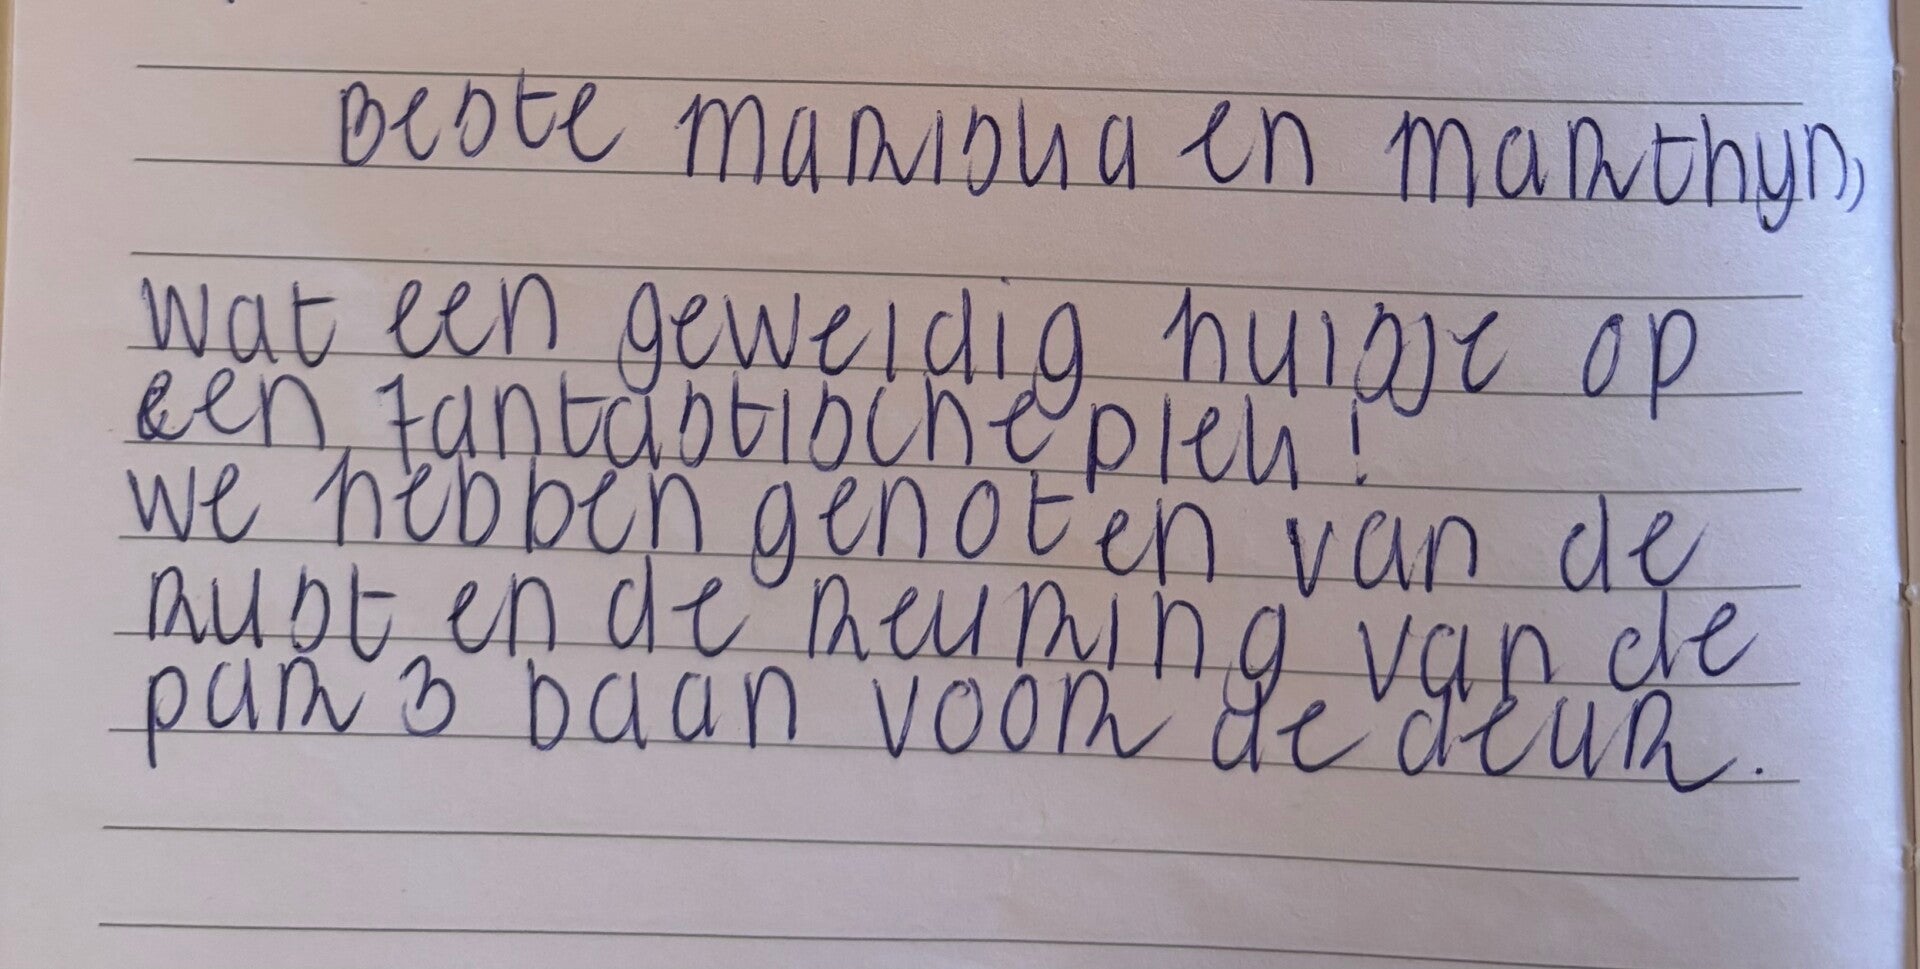 Beste Mariska en Marthyn,
Wat een geweldig huisje op
een fantastische plek!
We hebben genoten van de
rust en de reuring van de
par 3 baan voor de deur.